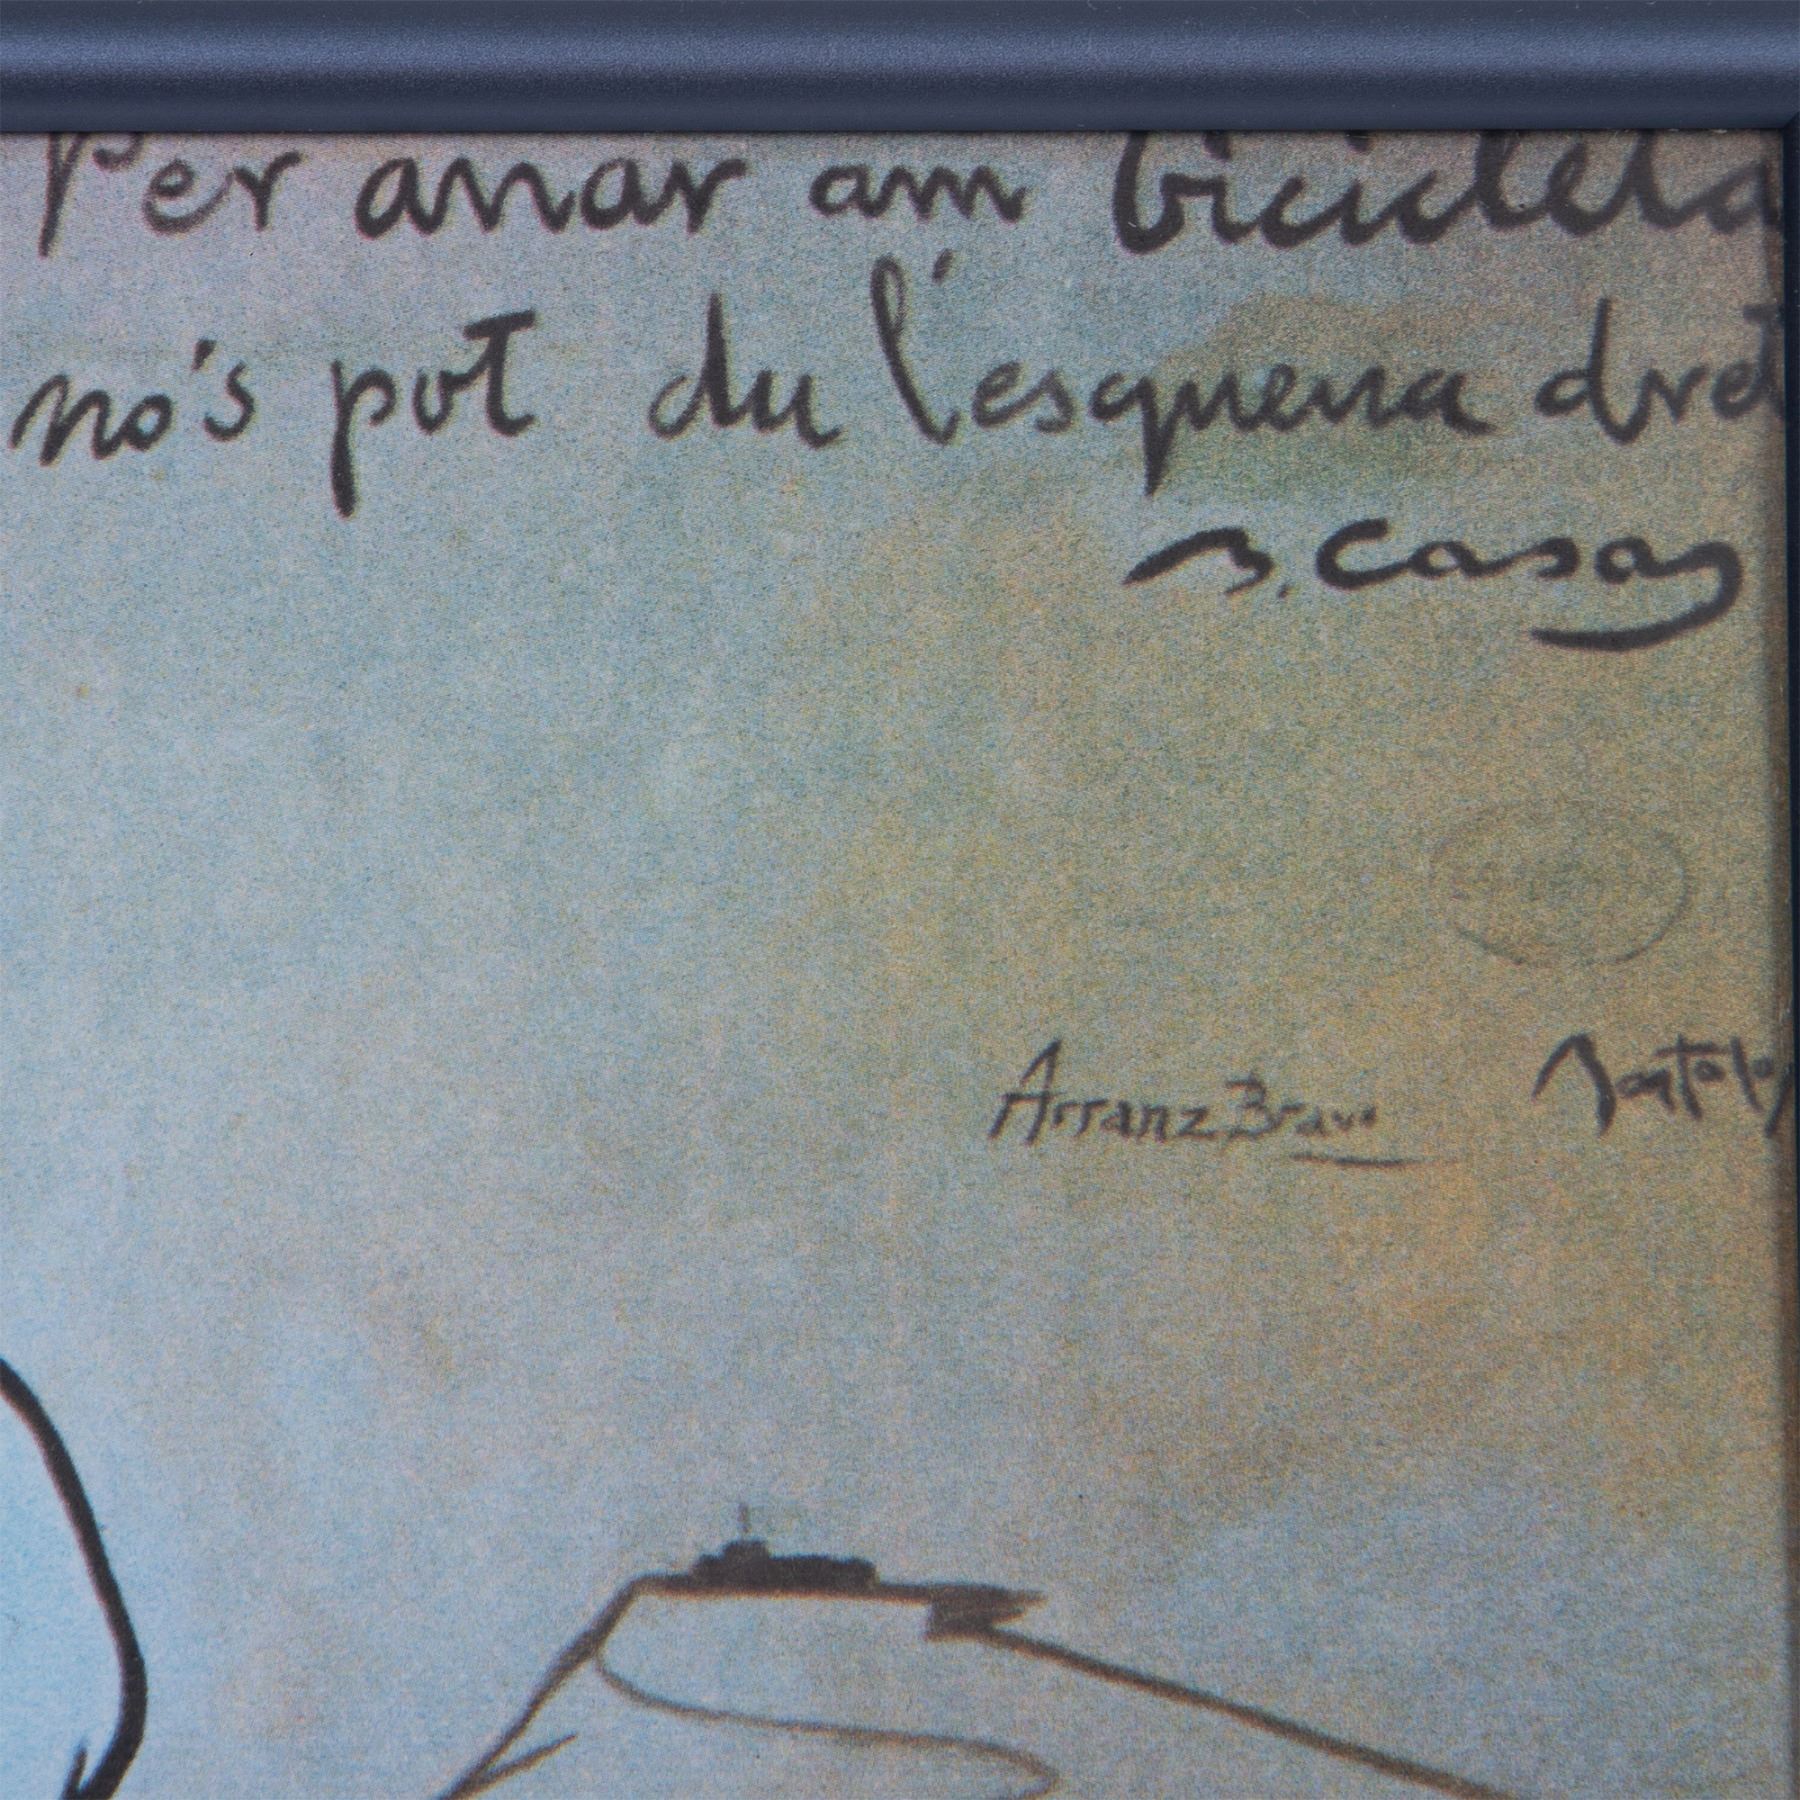 Per anar am bicicleta
no's pot du l'esquena dret
R. Casas
Arranz Bravo Bartolo